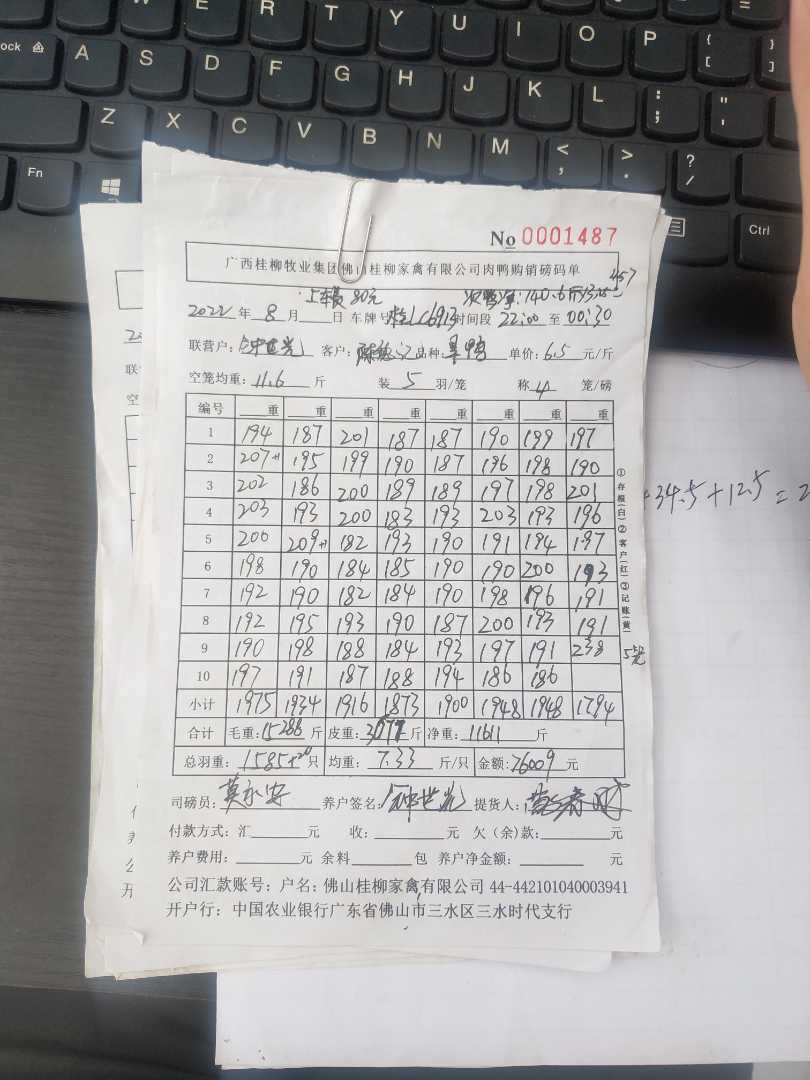 W E R T Y U I O P { [ } ] =
ock A S D F G H J K L : ; " '
Z X C V B N M < , > . ? /
Fn Ctrl
No 0001487
广西桂柳牧业集团佛山桂柳家禽有限公司肉鸭购销磅码单
上车费80元 次鸭净:140.6斤
2022年8月 日 车牌号 L6913 时间段 22:00 至 00:30
联营户: 钟世光 客户: 品种: 单价: 6.5 元/斤
空笼均重: 11.6 斤 装 5 羽/笼 称 4 笼/磅
编号 重 重 重 重 重 重 重 重
1 194 187 201 187 187 190 199 197
2 207+1 195 199 190 187 196 198 190
3 202 186 200 189 189 197 198 201
4 203 193 200 183 193 203 193 196
5 200 209+1 182 193 190 191 194 197
6 198 190 184 185 190 190 200 193
7 192 190 182 184 190 198 196 191
8 192 195 193 190 187 200 193 191
9 190 198 188 184 193 197 191 238 5笼
10 197 191 187 188 194 186 186
小计 1975 1934 1916 1873 1900 1948 1948 1794
合计 毛重: 15288 斤 皮重: 3677 斤 净重: 11611 斤
总羽重: 1585+20 只 均重: 7.33 斤/只 金额: 76009 元
司磅员: 莫永安 养户签名: 钟世光 提货人:
付款方式: 汇 元 收: 元 欠(余)款: 元
养户费用: 元 余料 包 养户净金额: 元
公司汇款账号: 户名: 佛山桂柳家禽有限公司 44-442101040003941
开户行: 中国农业银行广东省佛山市三水区三水时代支行
①存根(白)②客户(红)③记账(黄)
+34.5+12.5=2